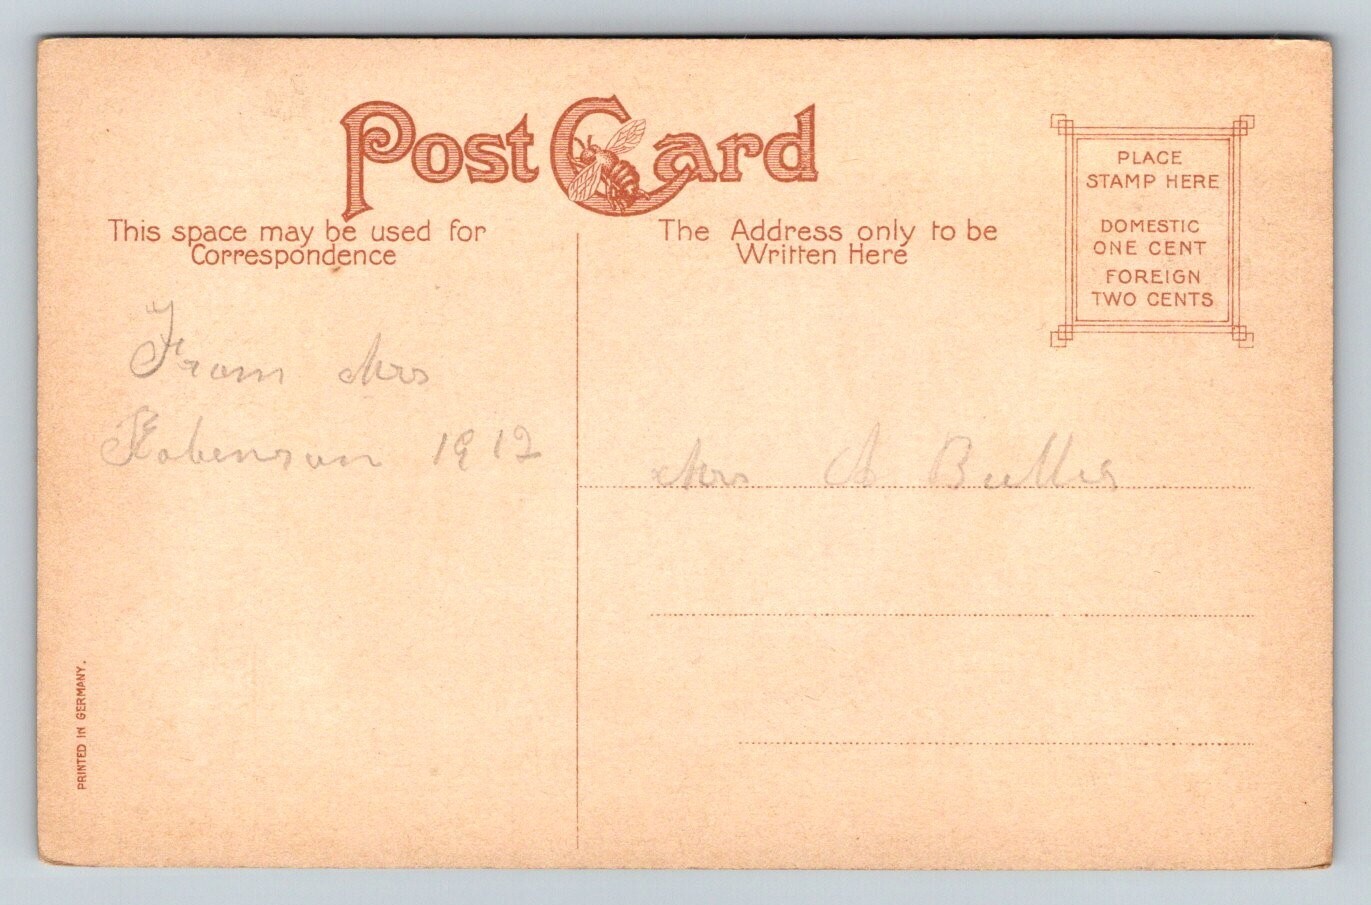 Post Card
This space may be used for
Correspondence
The Address only to be
Written Here
PLACE
STAMP HERE
DOMESTIC
ONE CENT
FOREIGN
TWO CENTS
From Mrs
Robenson 1912
Mrs A
PRINTED IN GERMANY.